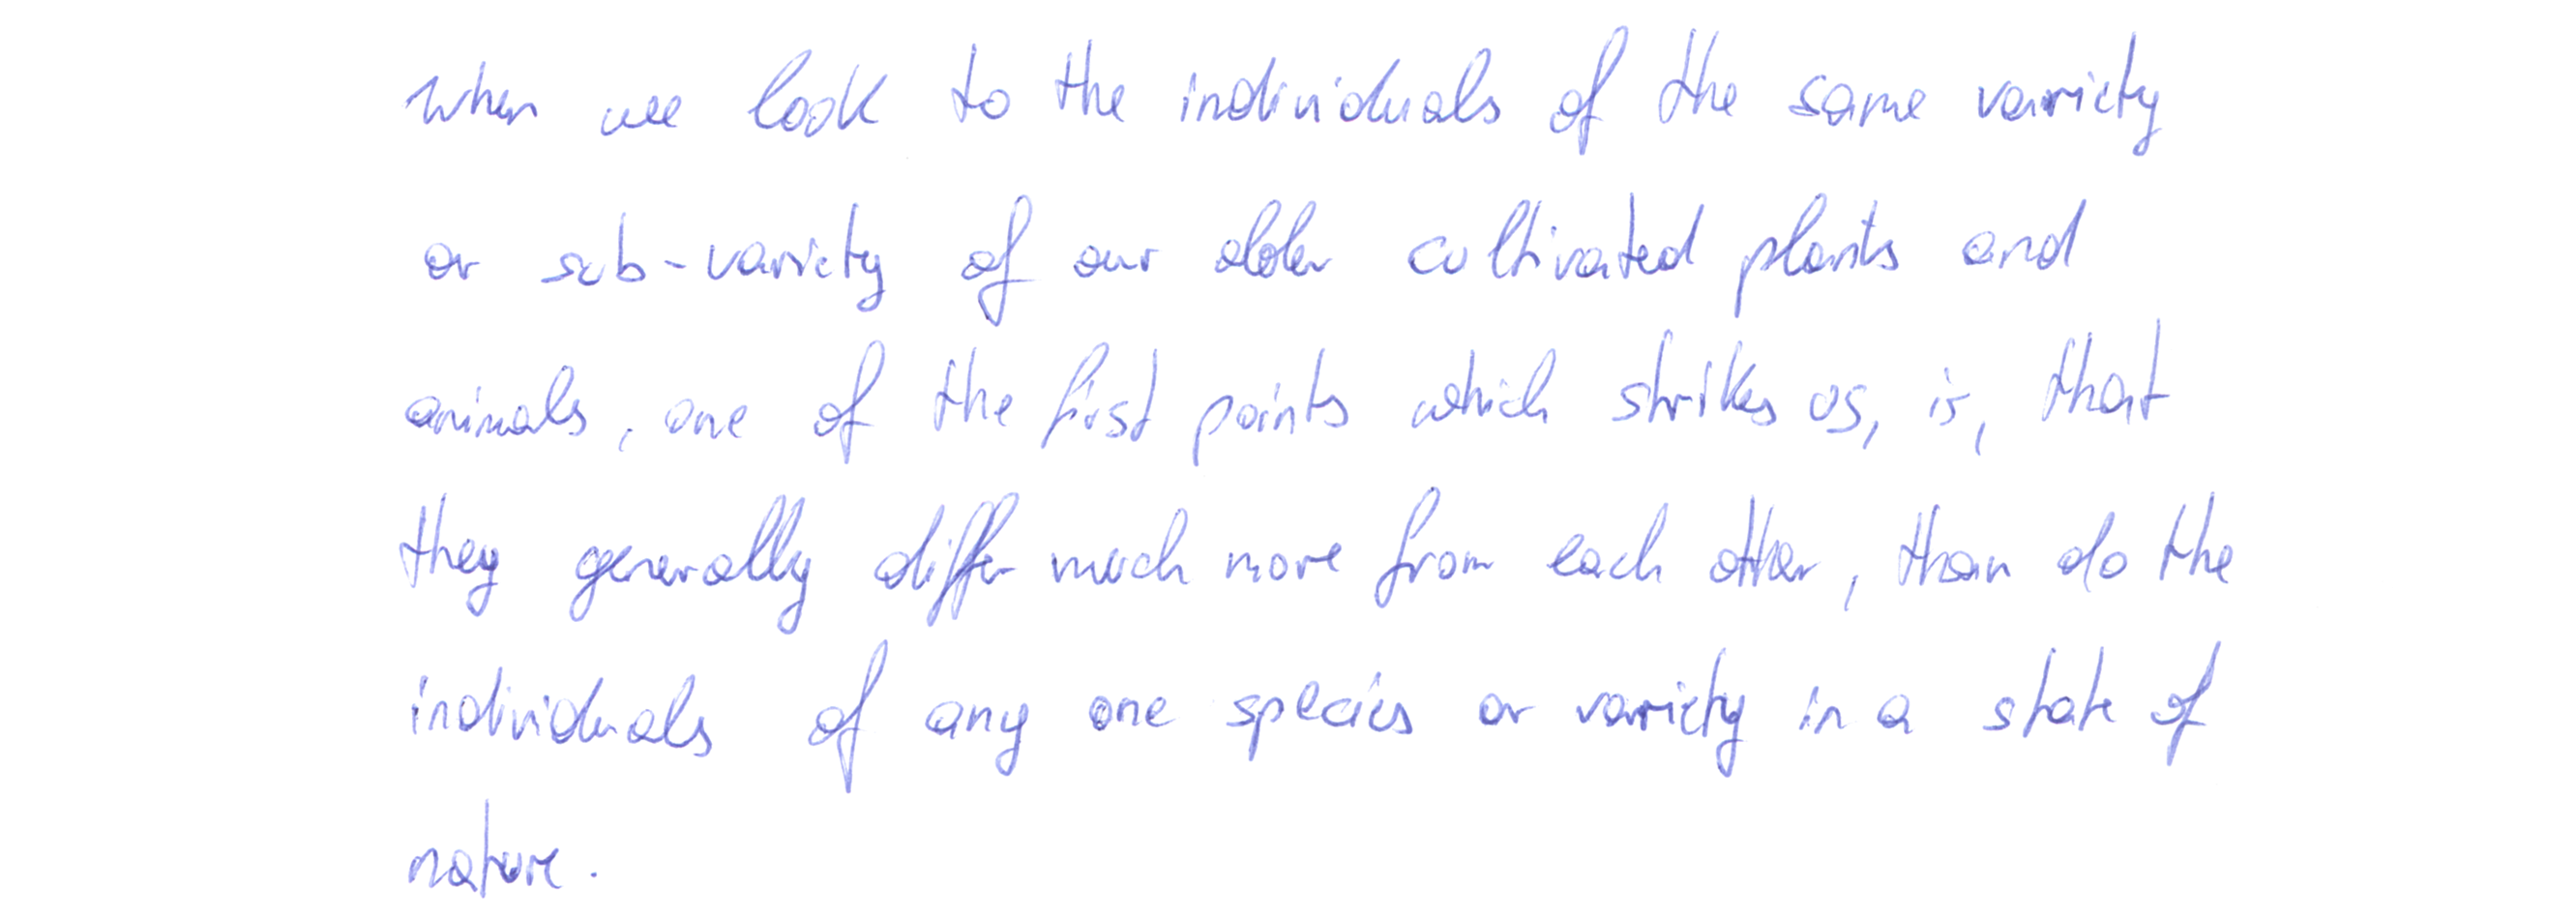 when we look to the individuals of the same variety
or sub-variety of our older cultivated plants and
animals, one of the first points which strikes us, is, that
they generally differ much more from each other, than do the
individuals of any one species or variety in a state of
nature.